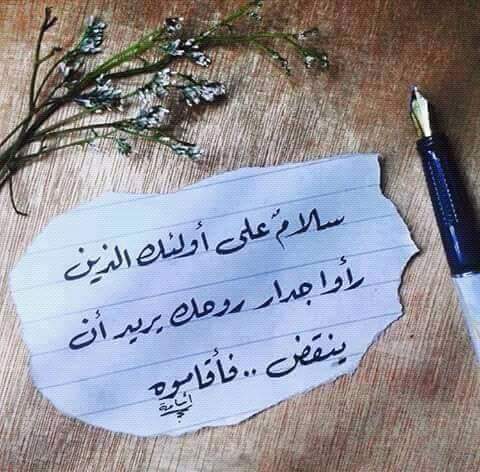 سلامٌ على أولئك الذين
رأوا جدار روحك يريد أن
ينقض .. فأقاموه
أسامة